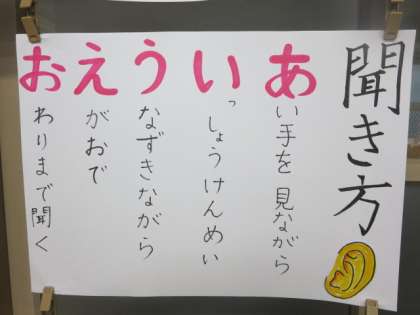 聞き方
あい手を見ながら
いっしょうけんめい
うなずきながら
えがおで
おわりまで聞く